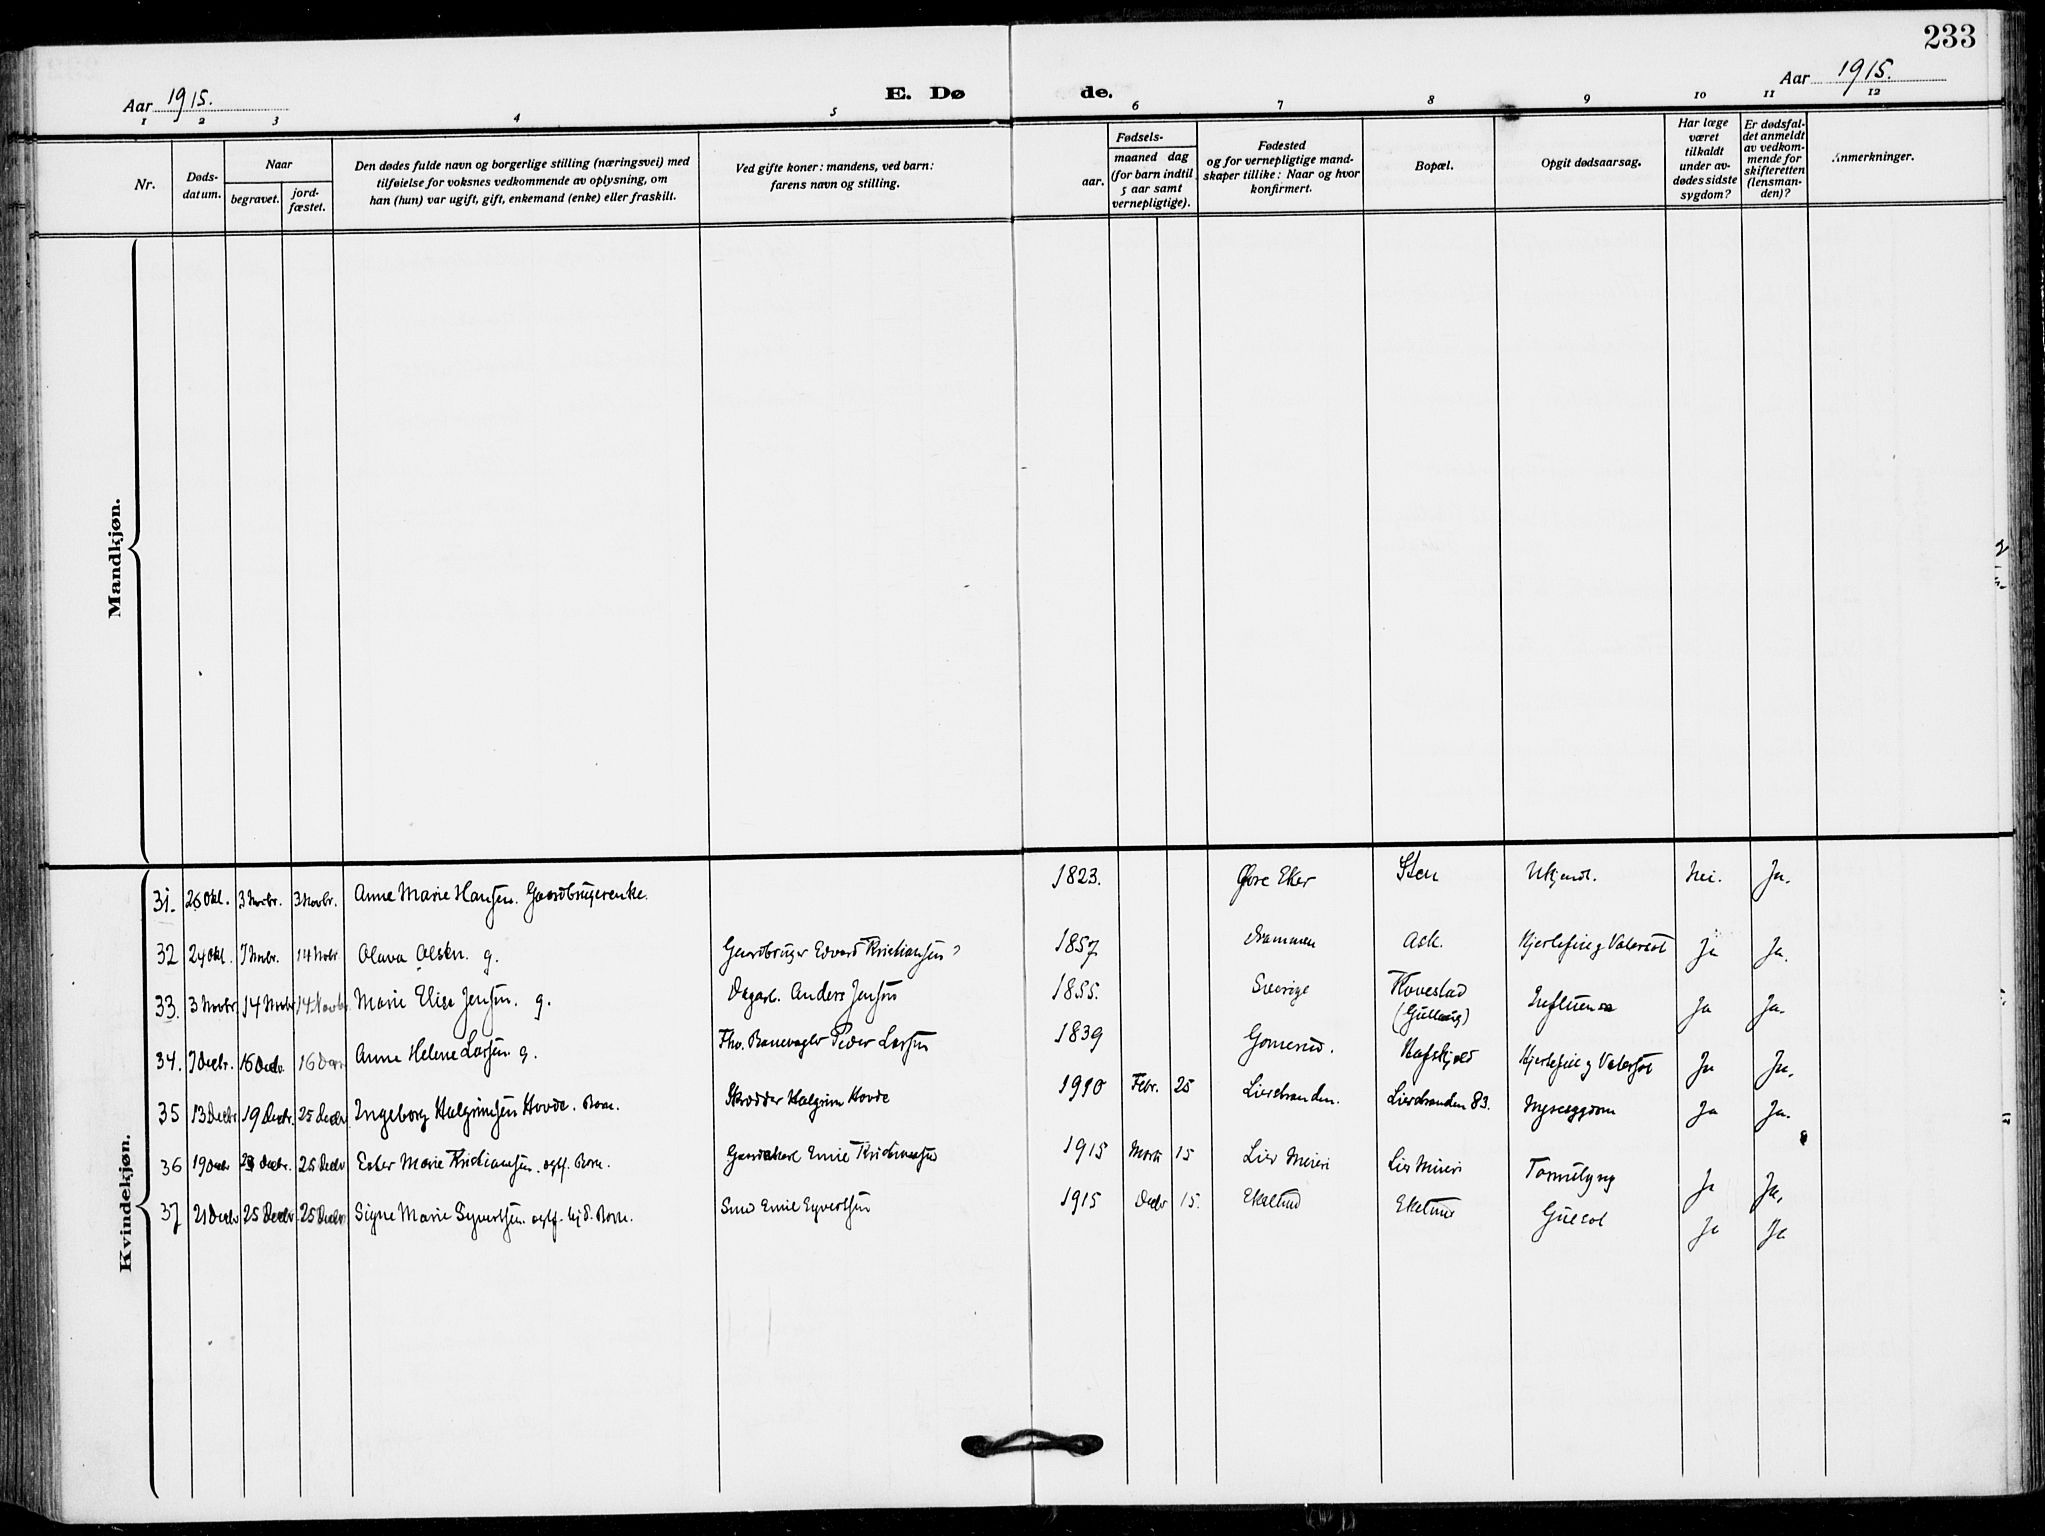 233
Aar 1915.
E. Dø de.
Aar 1915.
1 2 3 4 5 6 7 8 9 10 11 12
Nr.
Døds-
datum.
Naar
begravet.
jord-
fæstet.
Den dødes fulde navn og borgerlige stilling (næringsvei) med
tilføielse for voksnes vedkommende av oplysning, om
han (hun) var ugift, gift, enkemand (enke) eller fraskilt.
Ved gifte koner: mandens, ved barn:
farens navn og stilling.
Fødsels-
aar.
maaned dag
(for barn indtil
5 aar samt
vernepligtige).
Fødested
og for vernepligtige mand-
skaper tillike: Naar og hvor
konfirmert.
Bopæl.
Opgit dødsaarsag.
Har læge
været
tilkaldt
under av-
dødes sidste
sygdom?
Er dødsfal-
det anmeldt
av vedkom-
mende for
skifteretten
(lensman-
den)?
Anmerkninger.
Mandkjøn.
Kvindekjøn.
31. 26 Okt. 3 Novbr. 3 Novbr. Anne Marie Hansen. Gaardbrugerenke. 1823. Øvre Eker Sten Ukjendt. Nei. Ja.
32 24 Okt. 7 Novbr. 14 Novbr Olava Olsen. g. Gaardbruger Edvard Kristiansen 1857 Drammen Ask. Hjertefeil og Vatersot Ja Ja.
33. 3 Novbr. 14 Novbr 14 Novbr Marie Elise Jensen. g. Dagarb. Anders Jensen 1855. Sverige Hovestad
(Gullaug) Influensa Ja Ja.
34. 7 Decbr. 16 Decbr 16 Decbr Anne Helene Larsen. g. Fhv. Banevogter Peder Larsen 1839 Gomerud. Hjertefeil og Vatersot Ja Ja.
35 13 Decbr 19 Decbr. 25 Decbr. Ingeborg Halgrimsen Hovde. Barn. Skrædder Halgrim Hovde 1910 Febr. 25 Lierstranden. Lierstranden 83. Ja Ja.
36 19 Decbr 25 Decbr Ester Marie Kristiansen. egtf. Barn. Gaardskarl Emil Kristiansen 1915 Marts 15 Lier Meieri Lier Meieri Ja Ja.
37 21 Decbr 25 Decbr. 25 Decbr. Signe Marie Syvertsen. egtf. Barn. Smed Emil Syvertsen 1915 Decbr 15. Ekelund Ekelund Gulsot Ja Ja